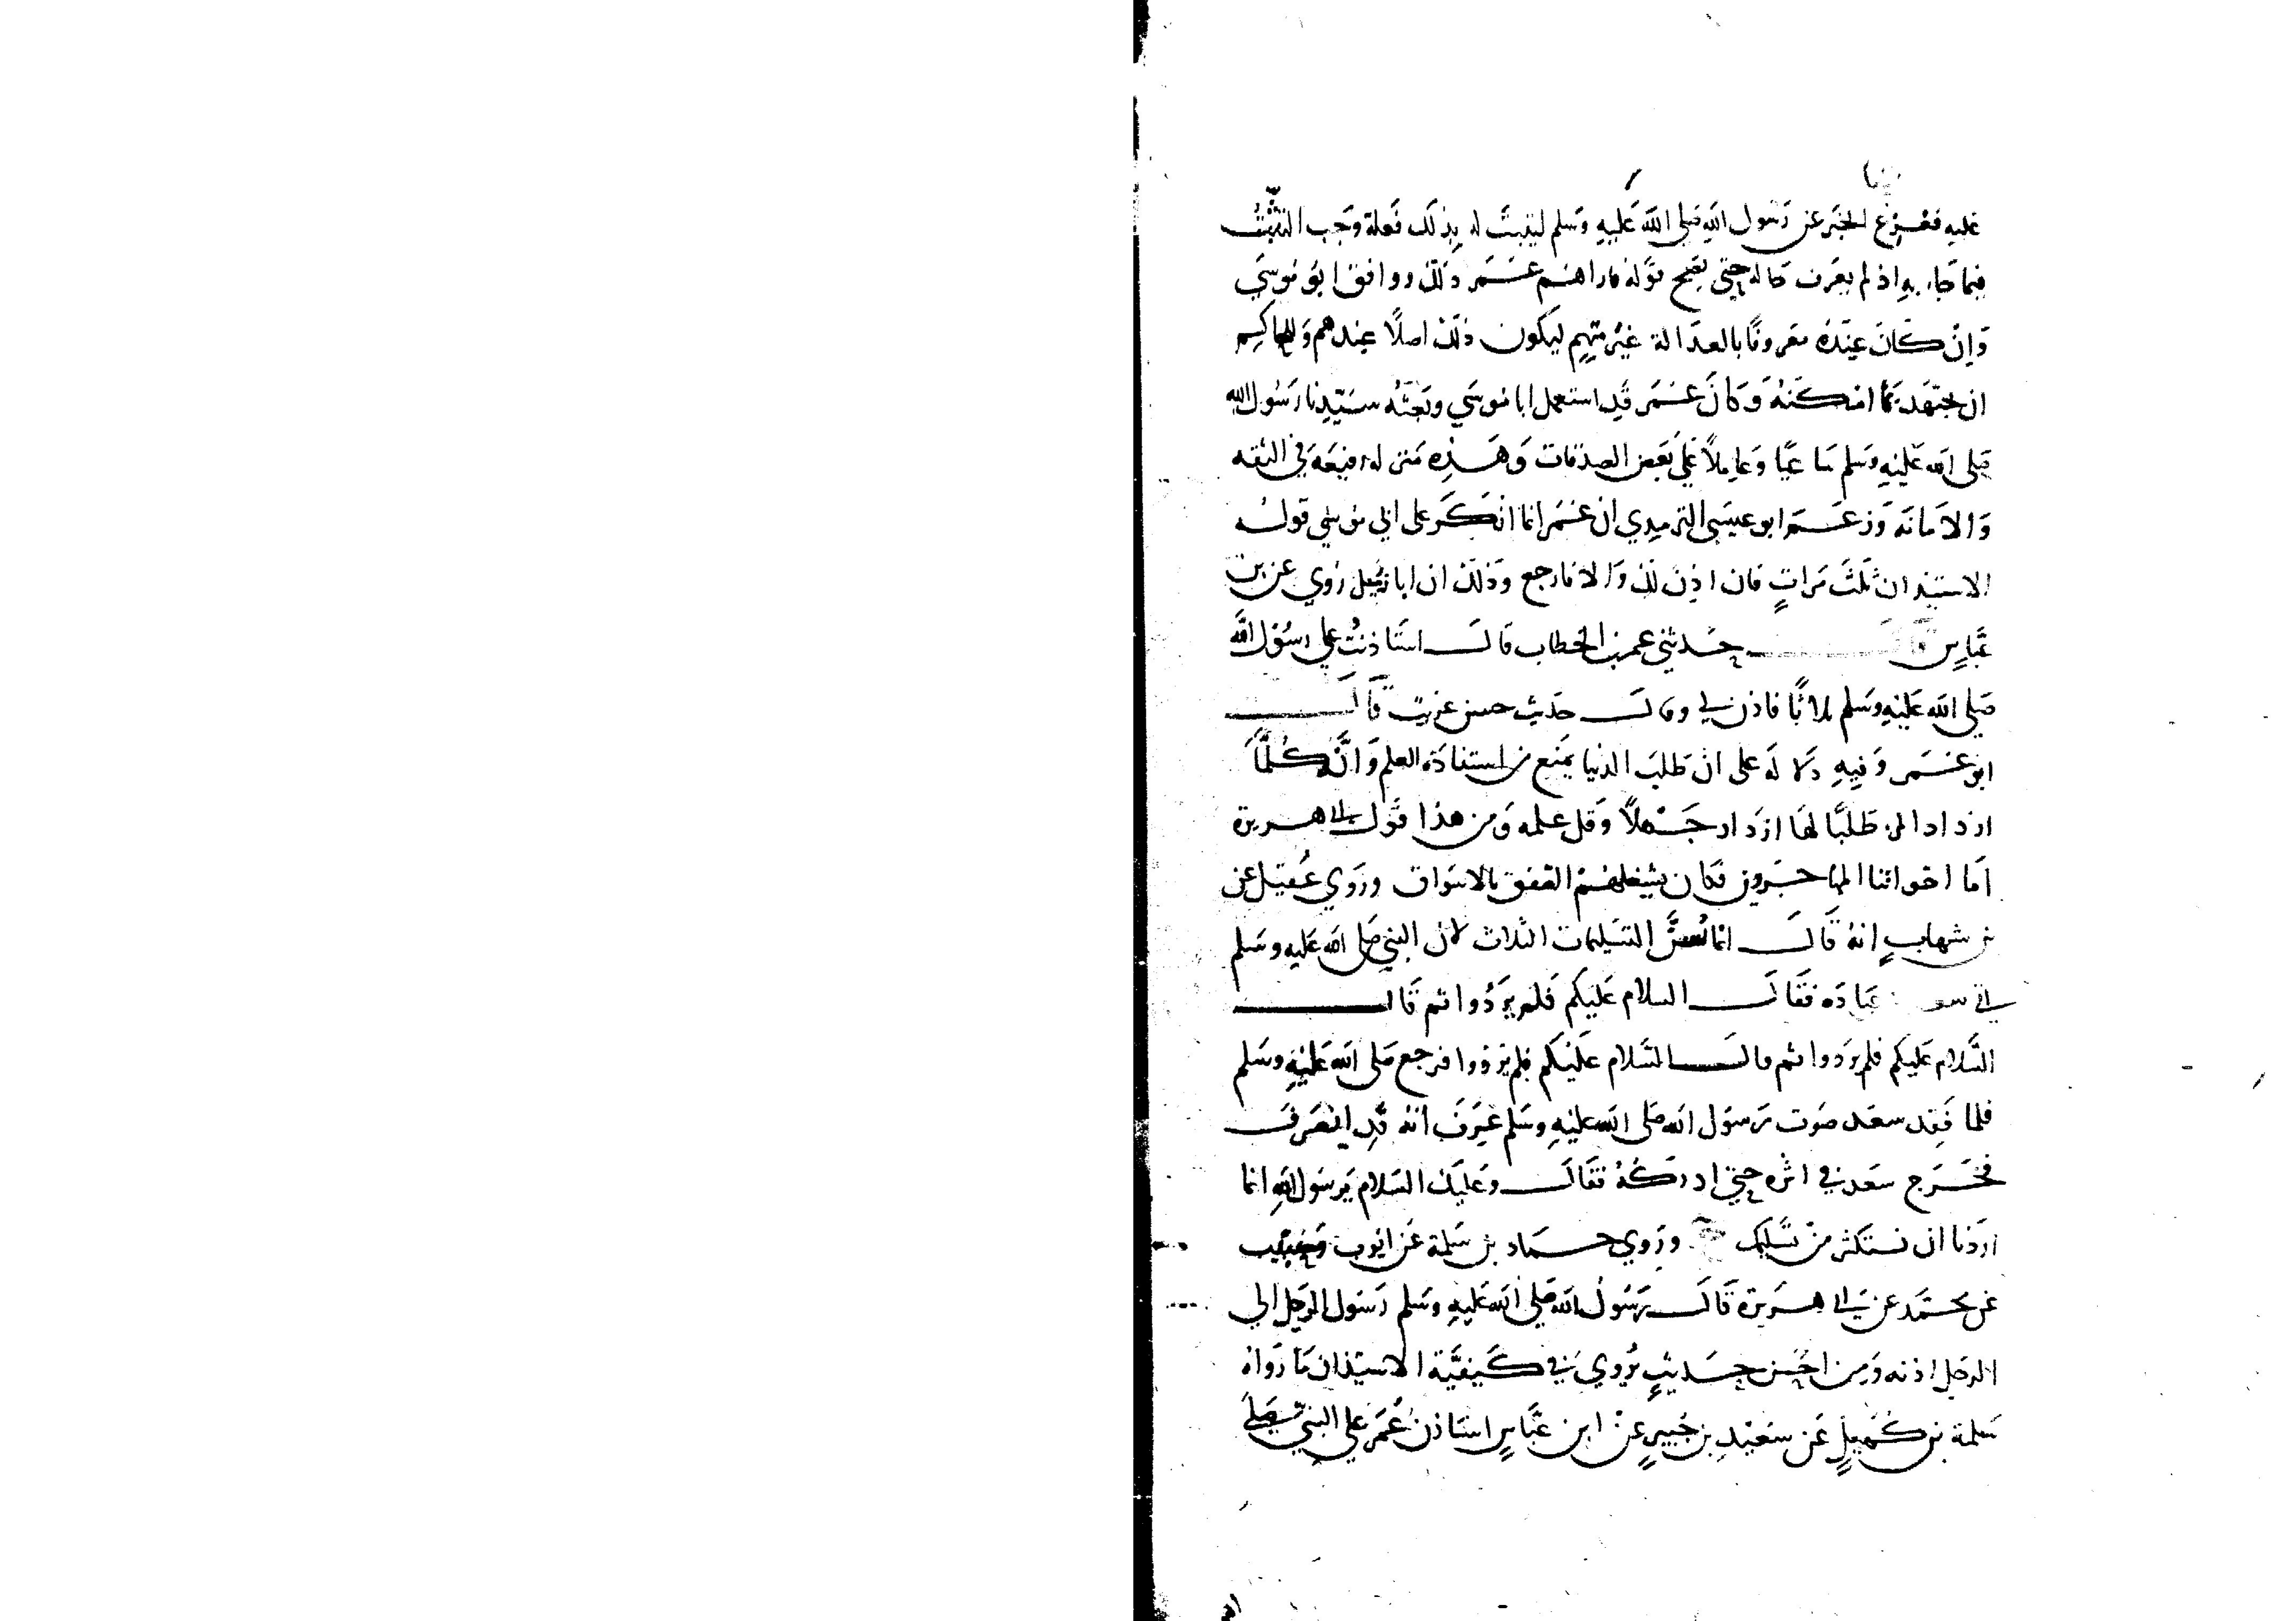 عليه ففزع الخبر عن رسول الله صلى الله عليه وسلم ليثبت له بذلك فعله وجب التثبت
فيما جاء به اذ لم يعرف حاله حتى يصح قوله فاراهم عمر ذلك ووافق ابو موسى
وان كان عنده معروفا بالعدالة غير متهم ليكون ذلك اصلا عندهم وللحاكم
ان يجتهد بما امكنه وكان عمر قد استعمل ابا موسى وبعثه سيدنا رسول الله
صلى الله عليه وسلم ساعيا وعاملا على بعض الصدقات وهذه منزلة رفيعة في الثقه
والامانه وزعم ابو عيسى الترمذي ان عمر انما انكر على ابي موسى قوله
الاستيذان ثلث مرات فان اذن لك والا فارجع وذلك ان ابا زميل روى عن بن
عباس قال حدثني عمر بن الخطاب قال استاذنت على رسول الله
صلى الله عليه وسلم ثلاثا فاذن لي وقال حديث حسن غريب قال
ابو عمر وفيه دلالة على ان طلب الدنيا يمنع من استفادة العلم وانه كلما
ازداد المرء طلبا لها ازداد جهلا وقل علمه ومن هذا قول ابي هريرة
اما اخواننا المهاجرون فكان يشغلهم الصفق بالاسواق وروى عقيل عن
بن شهاب انه قال انما سن التسليمات الثلاث لان النبي صلى الله عليه وسلم
اتى سعد عبادة فقال السلام عليكم فلم يردوا ثم قال
السلام عليكم فلم يردوا ثم قال السلام عليكم فلم يردوا فرجع صلى الله عليه وسلم
فلما فقد سعد صوت رسول الله صلى الله عليه وسلم عرف انه قد انصرف
فخرج سعد في اثره حتى ادركه فقال وعليك السلام يرسول الله انما
اردنا ان نستكثر من تسليمك وروى حماد بن سلمة عن ايوب وحبيب
عن محمد عن ابي هريرة قال رسول الله صلى الله عليه وسلم رسول الرجل الى
الرجل اذنه ومن احسن حديث يروى في كيفية الاستيذان ما رواه
سلمة بن كهيل عن سعيد بن جبير عن ابن عباس استاذن عمر على النبي صلى